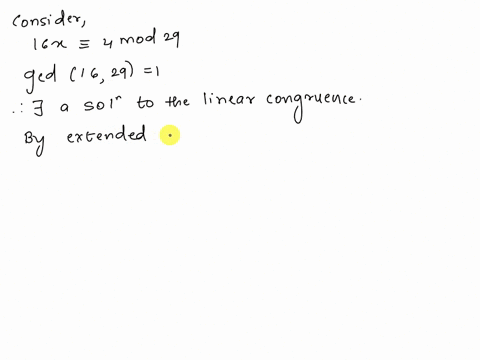 Consider,
16x ≡ 4 mod 29
gcd (16, 29) = 1
∴ ∃ a solⁿ to the linear congruence.
By extended